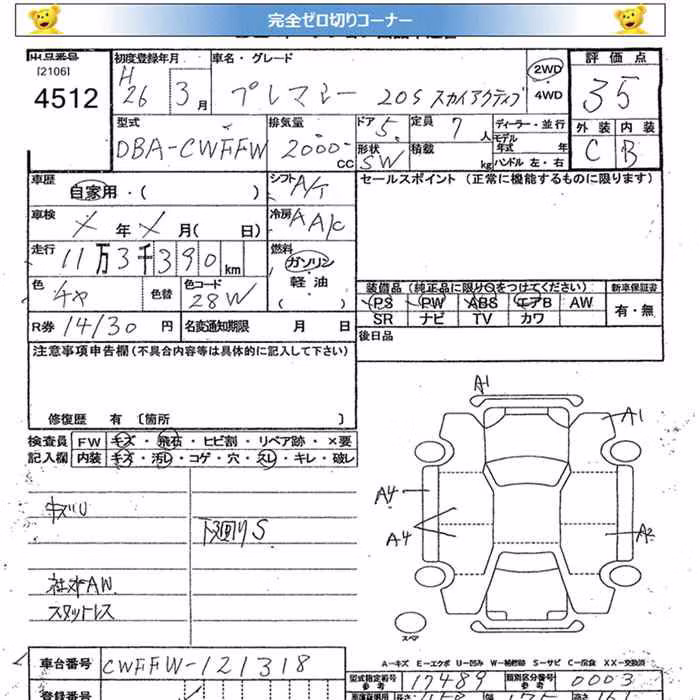 完全ゼロ切りコーナー
出品番号
[2106]
4512
初度登録年月
H
26 3月
車名・グレード
プレマシー 20S スカイアクティブ
2WD
4WD
評価点
35
型式
DBA-CWFFW
排気量
2000 CC
ドア 5
形状 SW
定員 7 人
積載 kg
ディーラー・並行
モデル年式 年
ハンドル 左・右
外装 内装
C B
車歴 自家用・( )
シフト A/T
セールスポイント (正常に機能するものに限ります)
車検 メ 年 メ 月( 日)
冷房 AA/C
走行 11万3千390 km
燃料 ガソリン
軽油
( )
色 チャ
色替
色コード 28W
装備品(純正品に限り○をつけてください) 新車保証書
PS PW ABS エアB AW
SR ナビ TV カワ
有・無
R券 14130 円
名変通知期限 月 日
後日品
注意事項申告欄(不具合内容等は具体的に記入して下さい)
修復歴 有 〔箇所 〕
検査員 FW キズ・飛石・ヒビ割・リペア跡・×要
記入欄 内装 キズ・汚レ・コゲ・穴・スレ・キレ・破レ
キズU
下廻りS
社外AW
スタットレス
A1
A1
A4
A4
A2
スペア
A-キズ E-エクボ U-凹み W-補修跡 S-サビ C-腐食 XX-交換済
車台番号 CWFFW-121318
型式指定番号 参考 17489
類別区分番号 参考 0003
登録番号